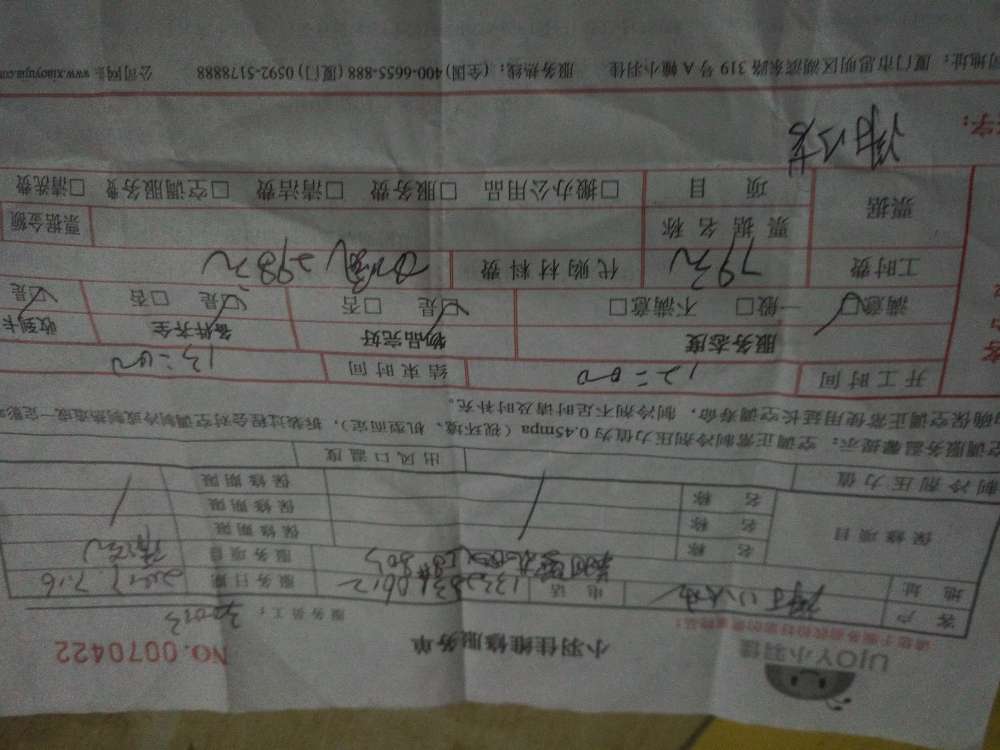 UJOY小羽佳
小羽佳维修服务单
NO.0070422
服务员工:
30013
客户
电话
服务日期
2017 7.16
地址
服务项目
清洗
保修项目
名称
保修期限
名称
保修期限
名称
保修期限
制冷剂压力值
出风口温度
空调服务温馨提示:空调正常制冷剂压力值为0.45mpa(视环境、机型而定),拆装过程会对空调制冷或制热造成一定影
确保空调正常使用延长空调寿命,制冷剂不足时请及时补充。
开工时间
12:00
结束时间
13:00
服务态度
物品完好
备件齐全
收到卡
满意☑ 一般□ 不满意□
☑是 □否
☑是 □否
☑是
工时费
79元
代购材料费
298元
票据
票据名称
票据金额
项目
□搬办公用品 □服务费 □清洁费 □空调服务费 □清洗费
字:
司地址:厦门市思明区湖滨东路319号A幢小羽佳 服务热线:(全国)400-6655-888(厦门)0592-5178888 公司网址:www.xiaoyujia.com